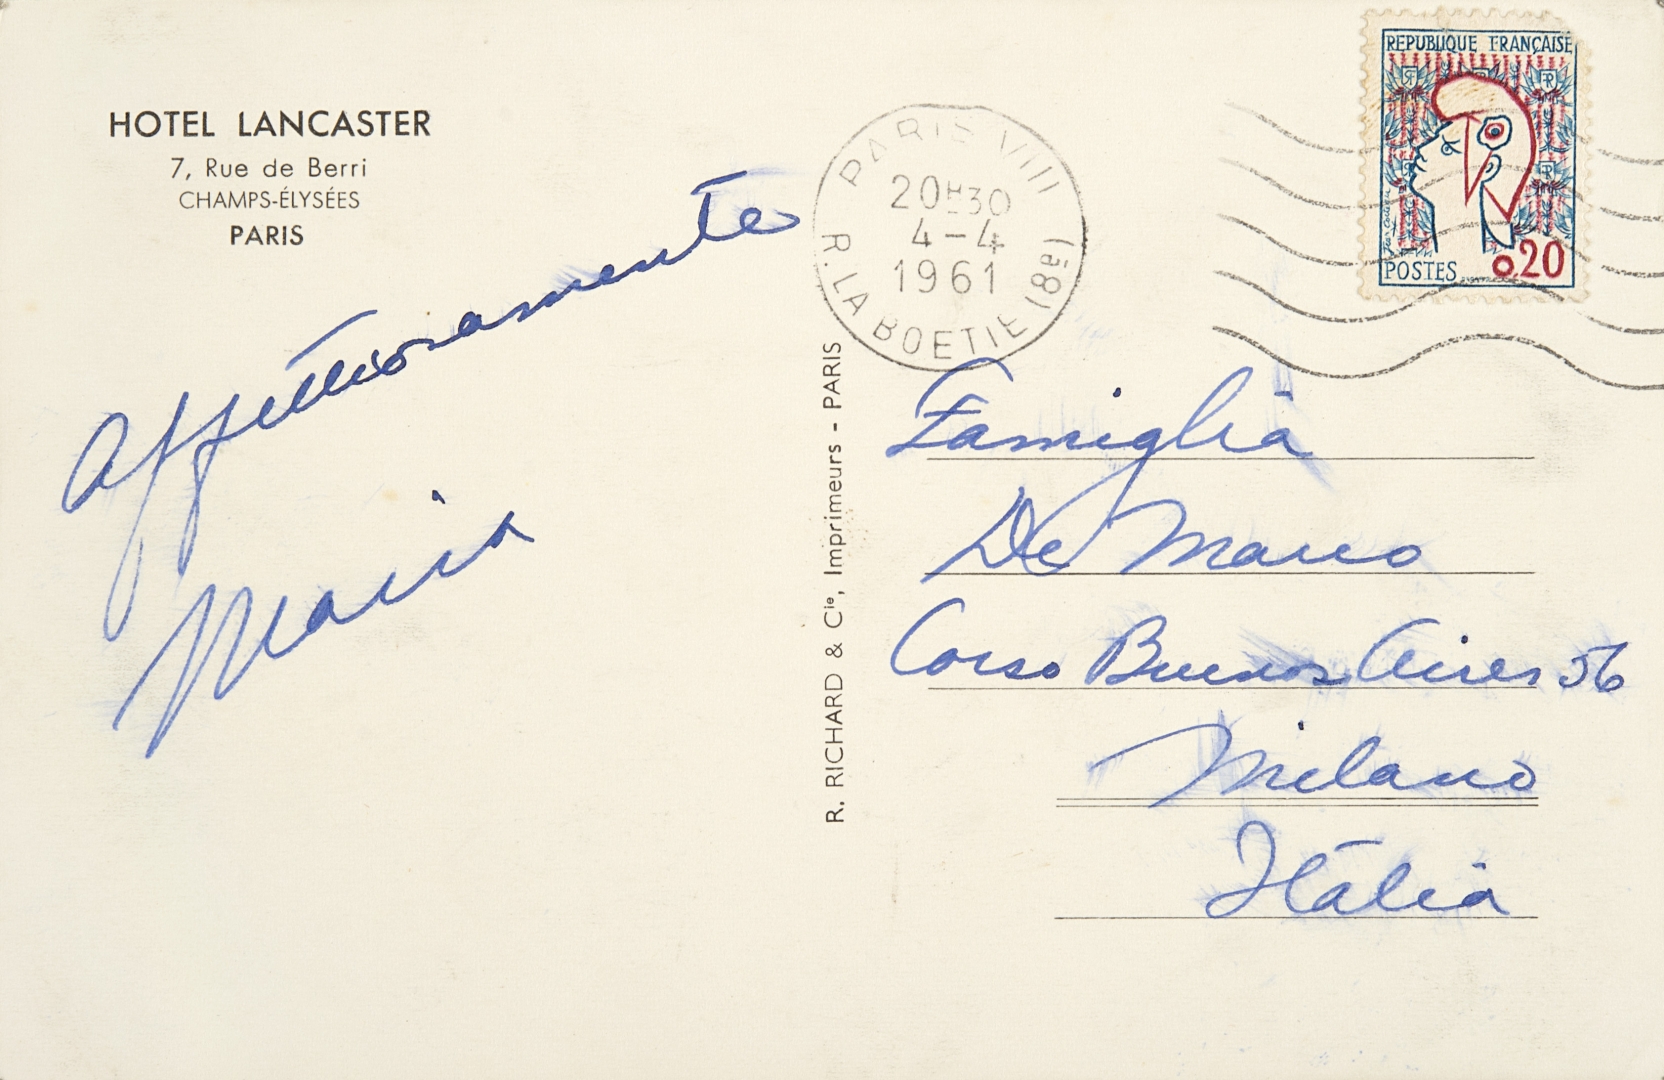 HOTEL LANCASTER
7, Rue de Berri
CHAMPS-ÉLYSÉES
PARIS
Affettuosamente
Maria
R. RICHARD & Cie, Imprimeurs - PARIS
PARIS VIII
20H30
4-4
1961
R. LA BOETIE (18e)
REPUBLIQUE FRANÇAISE
POSTES 0.20
Famiglia
De Marco
Corso Buenos Aires 56
Milano
Italia